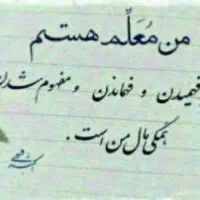 من مُعَلِّم هستم
فهمیدن و فهماندن و مفهوم شدن
همگی مال من است.